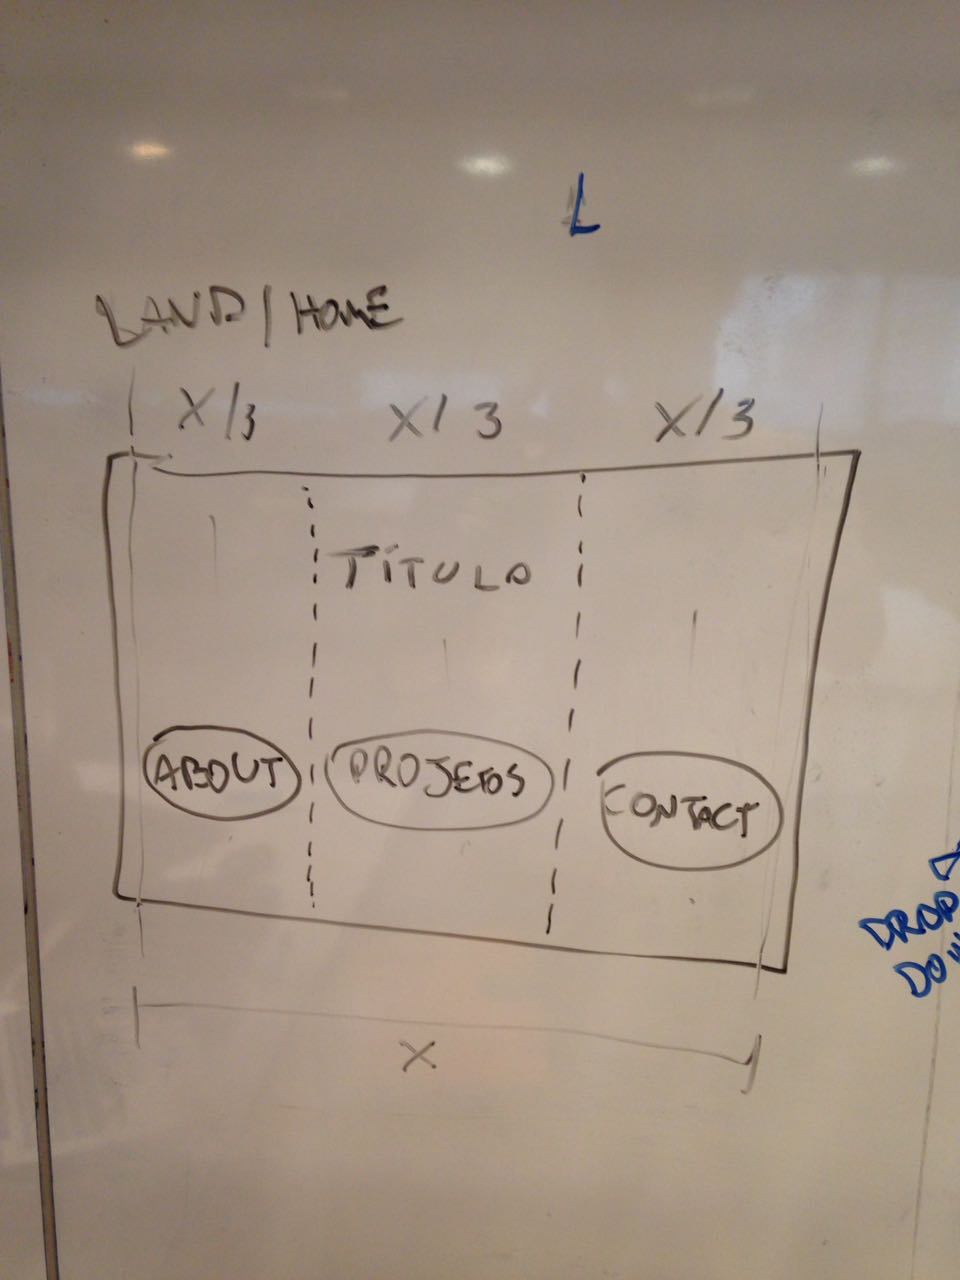 L
LAND/HOME
X/3 X/3 X/3
TÍTULO
ABOUT PROJETOS CONTACT
DROP
X